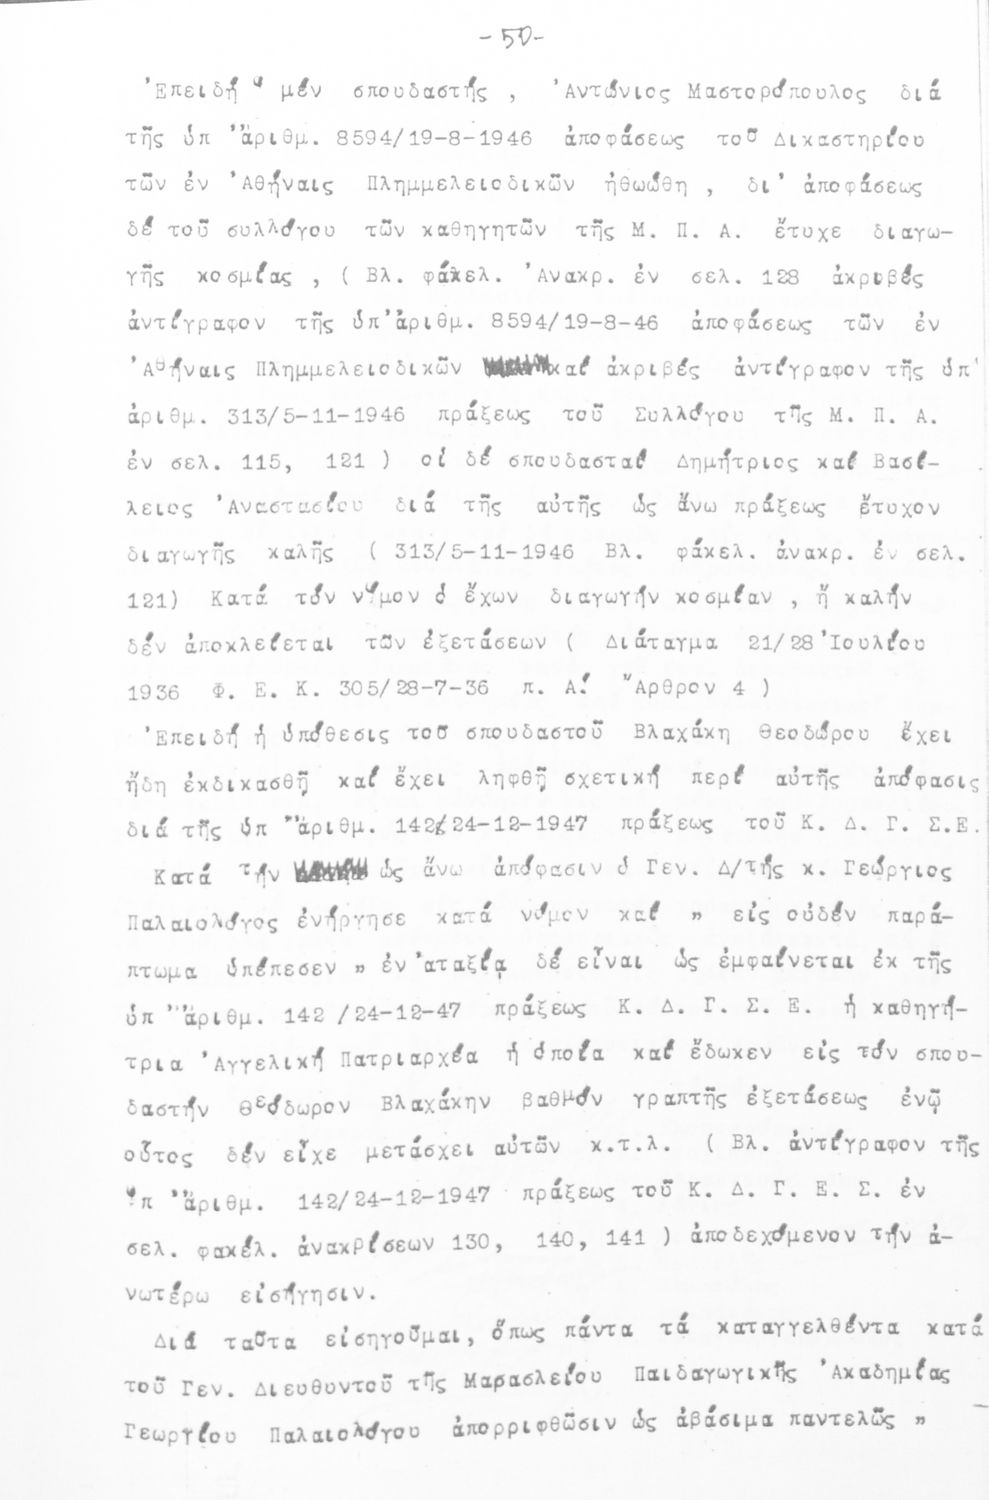 -50-
Ἐπειδή ὁ μέν σπουδαστής , Ἀντώνιος Μαστορόπουλος διά
τῆς ὑπ᾽ ἄριθμ. 8594/19-8-1946 ἀποφάσεως τοῦ Δικαστηρίου
τῶν ἐν Ἀθήναις Πλημμελειοδικῶν ἠθωώθη , δι᾽ ἀποφάσεως
δέ τοῦ συλλόγου τῶν καθηγητῶν τῆς Μ. Π. Α. ἔτυχε διαγω-
γῆς κοσμίας , ( Βλ. φάκελ. Ἀνακρ. ἐν σελ. 128 ἀκριβές
ἀντίγραφον τῆς ὑπ᾽ἄριθμ. 8594/19-8-46 ἀποφάσεως τῶν ἐν
Ἀθήναις Πλημμελειοδικῶν καί ἀκριβές ἀντίγραφον τῆς ὑπ᾽
ἀριθμ. 313/5-11-1946 πράξεως τοῦ Συλλόγου τῆς Μ. Π. Α.
ἐν σελ. 115, 121 ) οἱ δέ σπουδασταί Δημήτριος καί Βασί-
λειος Ἀναστασίου διά τῆς αὐτῆς ὡς ἄνω πράξεως ἔτυχον
διαγωγῆς καλῆς ( 313/5-11-1946 Βλ. φάκελ. ἀνακρ. ἐν σελ.
121) Κατά τόν νόμον ὁ ἔχων διαγωγήν κοσμίαν , ἤ καλήν
δέν ἀποκλείεται τῶν ἐξετάσεων ( Διάταγμα 21/28 Ἰουλίου
1936 Φ. Ε. Κ. 305/28-7-36 π. Α! Ἄρθρον 4 )
Ἐπειδή ἡ ὑπόθεσις τοῦ σπουδαστοῦ Βλαχάκη Θεοδώρου ἔχει
ἤδη ἐκδικασθῆ καί ἔχει ληφθῆ σχετική περί αὐτῆς ἀπόφασις
διά τῆς ὑπ᾽ ἄριθμ. 142/24-12-1947 πράξεως τοῦ Κ. Δ. Γ. Σ.Ε.
Κατά τήν ὡς ἄνω ἀπόφασιν ὁ Γεν. Δ/τής κ. Γεώργιος
Παλαιολόγος ἐνήργησε κατά νόμον καί " εἰς οὐδέν παρά-
πτωμα ὑπέπεσεν " ἐν ἀταξίᾳ δέ εἶναι ὡς ἐμφαίνεται ἐκ τῆς
ὑπ᾽ ἄριθμ. 142 /24-12-47 πράξεως Κ. Δ. Γ. Σ. Ε. ἡ καθηγή-
τρια Ἀγγελική Πατριαρχέα ἡ ὁποία καί ἔδωκεν εἰς τόν σπου-
δαστήν Θεόδωρον Βλαχάκην βαθμόν γραπτῆς ἐξετάσεως ἐνῷ
οὗτος δέν εἶχε μετάσχει αὐτῶν κ.τ.λ. ( Βλ. ἀντίγραφον τῆς
ὑπ᾽ ἄριθμ. 142/24-12-1947 πράξεως τοῦ Κ. Δ. Γ. Ε. Σ. ἐν
σελ. φακέλ. ἀνακρίσεων 130, 140, 141 ) ἀποδεχόμενον τήν ἀ-
νωτέρω εἰσήγησιν.
Διά ταῦτα εἰσηγοῦμαι, ὅπως πάντα τά καταγγελθέντα κατά
τοῦ Γεν. Διευθυντοῦ τῆς Μαρασλείου Παιδαγωγικῆς Ἀκαδημίας
Γεωργίου Παλαιολόγου ἀπορριφθῶσιν ὡς ἀβάσιμα παντελῶς "